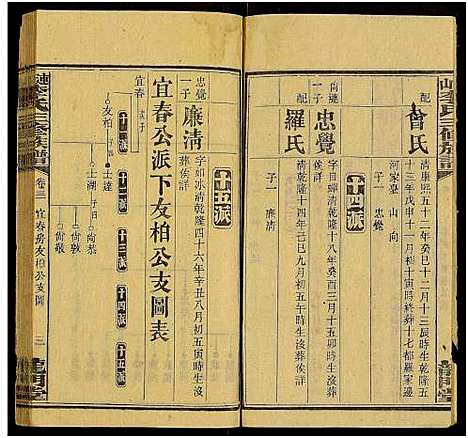 氏三修族譜
配 曾氏
清康熙五十二年癸巳十二月十三辰時生乾隆五
十三年戊申十一月初十寅時終葬十七都羅家嶺
河家臺 山 向
十四派
尚璉一子 忠覺
字目暉清乾隆十八年癸酉三月十五卯時生沒葬
俟詳
配 羅氏
清乾隆十四年己巳九月初五午時生沒葬俟詳
子一 廉清
龍門堂
十五派
忠覺一子 廉清
字如冰清乾隆四十六年辛丑八月初五寅時生沒
葬俟詳
宜春公派下友柏公支圖表
十一派 十二派 十三派 十四派 十五派
宜春
次子
友柏
士達
士湖
尚恭
尚敦
尚敬
氏三修族譜
卷三 宜春房友柏公支圖 三
龍門堂